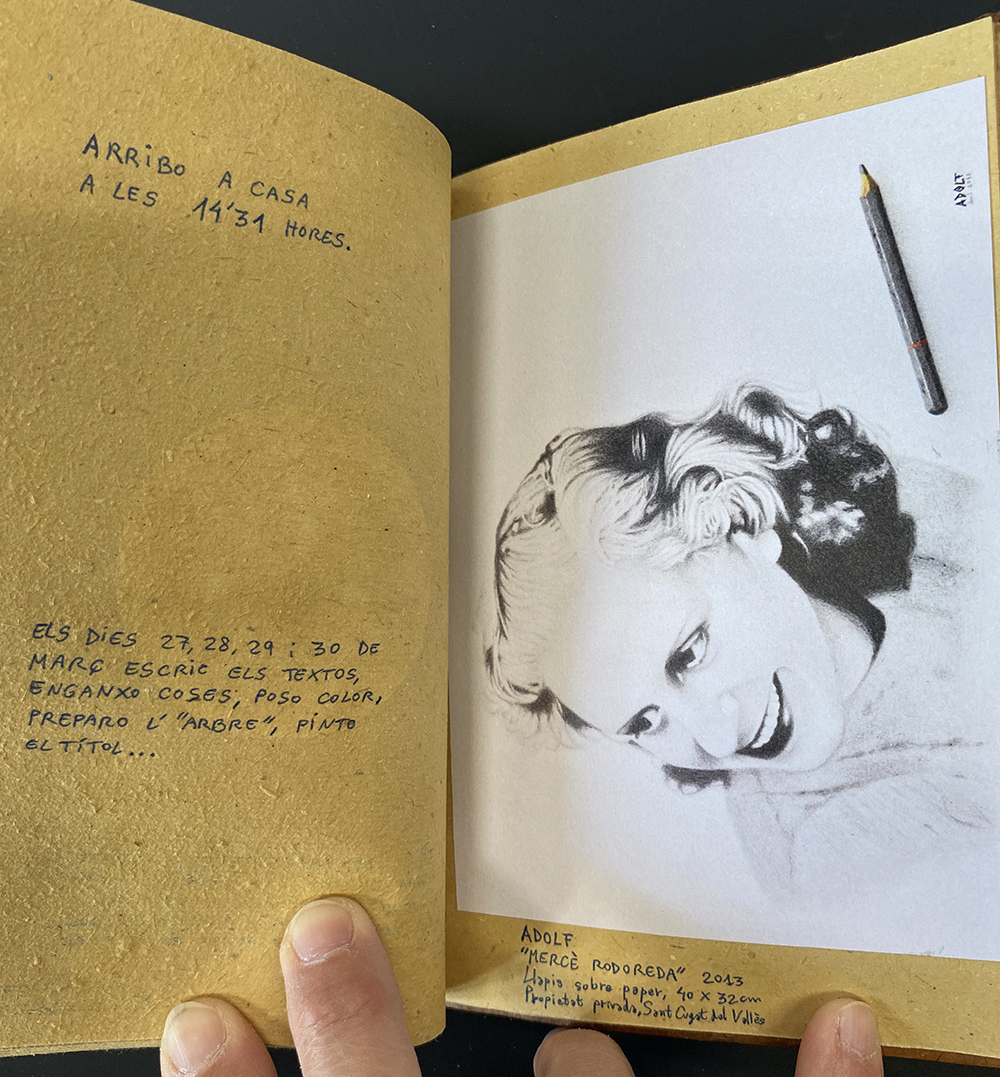 ARRIBO A CASA
A LES 14'31 HORES.
ELS DIES 27, 28, 29 i 30 DE
MARÇ ESCRIC ELS TEXTOS,
ENGANXO COSES, POSO COLOR,
PREPARO L' "ARBRE", PINTO
EL TÍTOL...
ADOLF
ADOLF
"MERCÈ RODOREDA" 2013
Llapis sobre paper, 40 x 32 cm
Propietat privada, Sant Cugat del Vallès